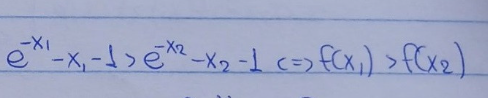 e^{-x₁} - x₁ - 1 > e^{-x₂} - x₂ - 1 <=> f(x₁) > f(x₂)